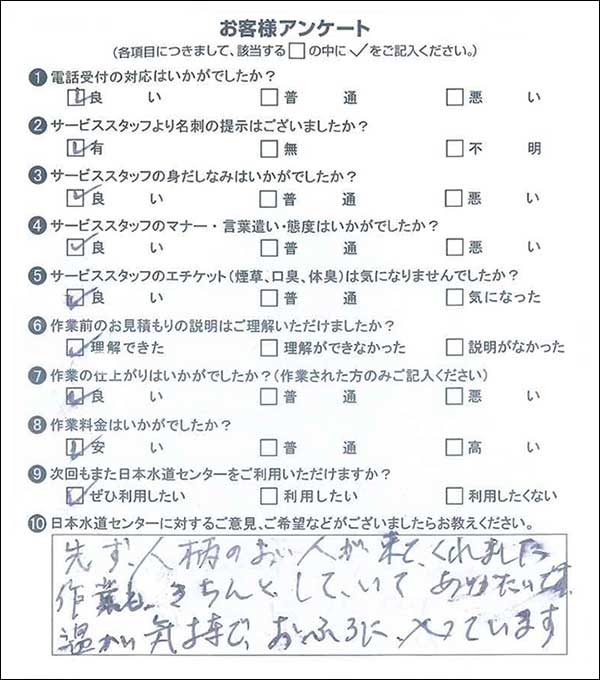 お客様アンケート
(各項目につきまして、該当する□の中に✓をご記入ください。)
❶電話受付の対応はいかがでしたか？
☑良い □普通 □悪い
❷サービススタッフより名刺の提示はございましたか？
☑有 □無 □不明
❸サービススタッフの身だしなみはいかがでしたか？
☑良い □普通 □悪い
❹サービススタッフのマナー・言葉遣い・態度はいかがでしたか？
☑良い □普通 □悪い
❺サービススタッフのエチケット(煙草、口臭、体臭)は気になりませんでしたか？
☑良い □普通 □気になった
❻作業前のお見積もりの説明はご理解いただけましたか？
☑理解できた □理解ができなかった □説明がなかった
❼作業の仕上がりはいかがでしたか？(作業された方のみご記入ください)
☑良い □普通 □悪い
❽作業料金はいかがでしたか？
☑安い □普通 □高い
❾次回もまた日本水道センターをご利用いただけますか？
☑ぜひ利用したい □利用したい □利用したくない
❿日本水道センターに対するご意見、ご希望などがございましたらお教えください。
先ず、人柄のよい人が来て、くれました
作業も、きちんと、して、いて ありがたいです
温かい気持で、おふろに、入っています